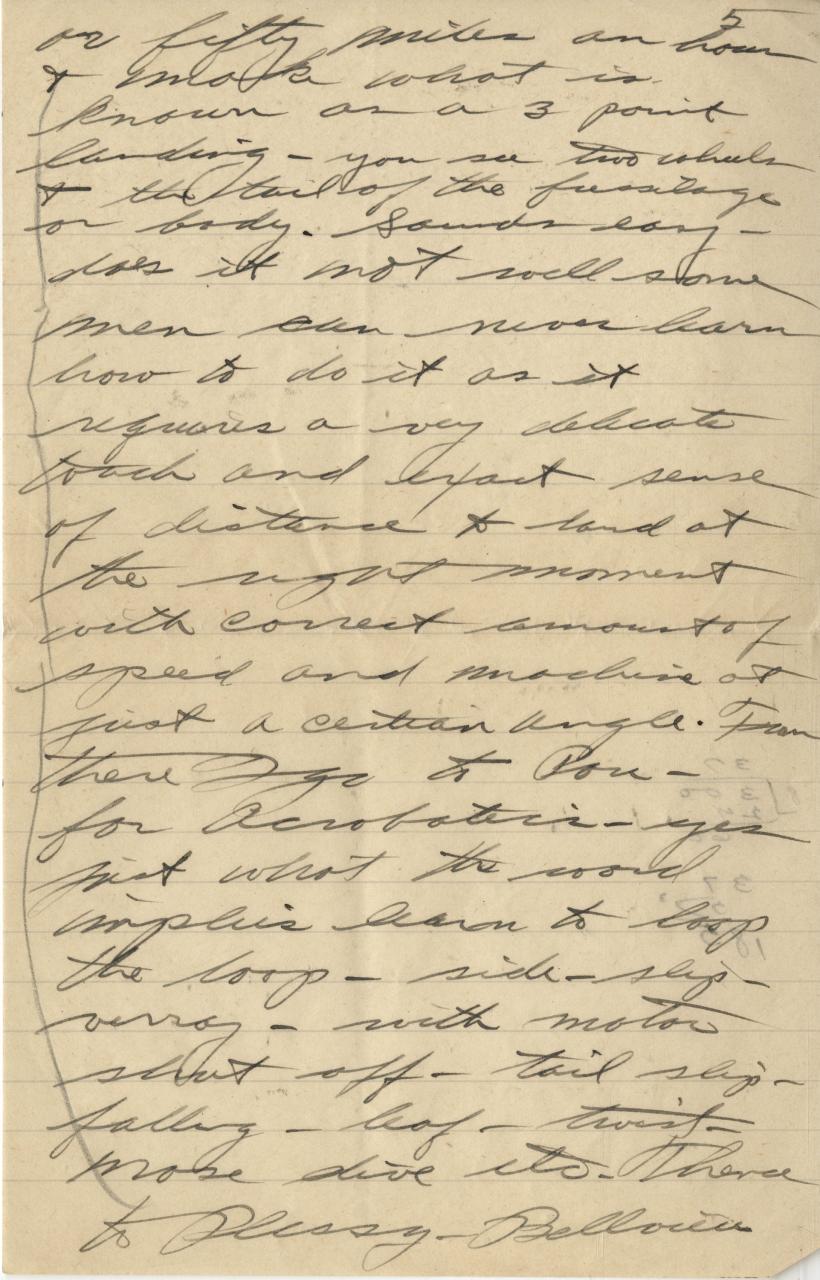 5
or fifty miles an hour
& make what is
known as a 3 point
landing - you see two wheels
& the tail of the fusilage
or body. Sounds easy -
does it not well some
men can never learn
how to do it as it
requires a very delicate
touch and exact sense
of distance to land at
the right moment
with correct amount of
speed and machine at
just a certian angle. From
there I go to Pou -
for Acrobatics - yes
just what the word
implies learn to loop
the loop - side - slip -
verray - with motor
shut off - tail slip -
falling - leaf - twist -
nose dive etc. Thence
to Plessy - Bellview